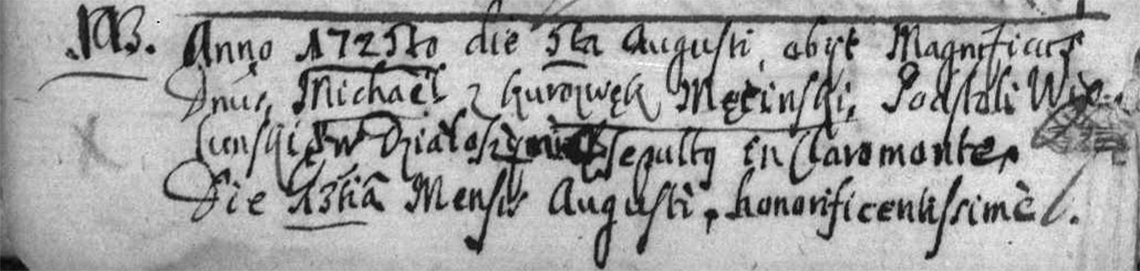 NB. Anno 1725to die 5ta Augusti, obijt Magnificus
Dnus, Michael z Kurozwęk Męcinski, Podstoli Wie-
lunski, w Dzialoszynie sepultq in Claromonte,
Die 13tia Mensis Augusti, honorificentissimè.